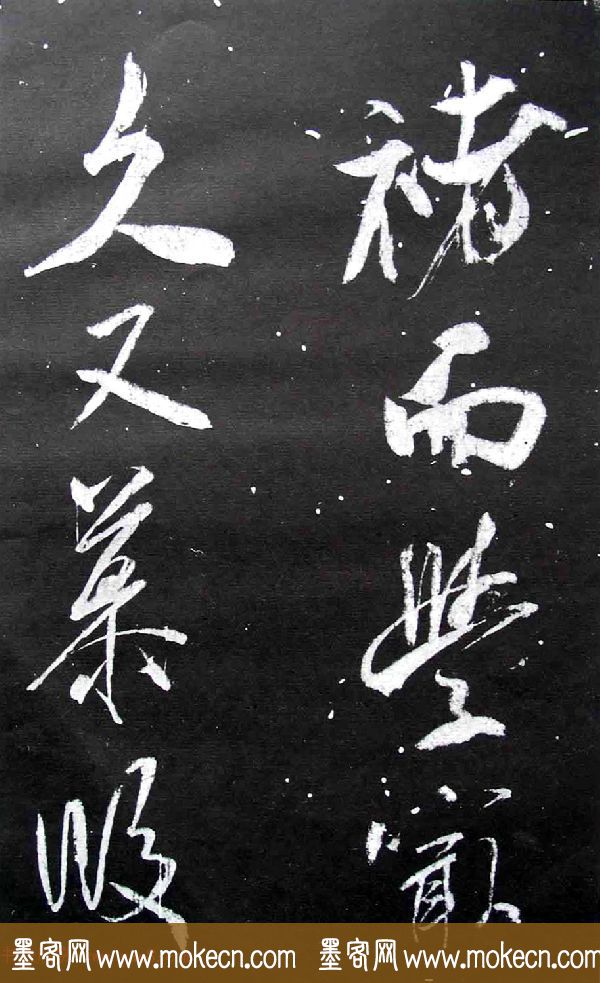 褚而學最
久又慕段
墨客网 www.mokecn.com 墨客网 www.mokecn.com